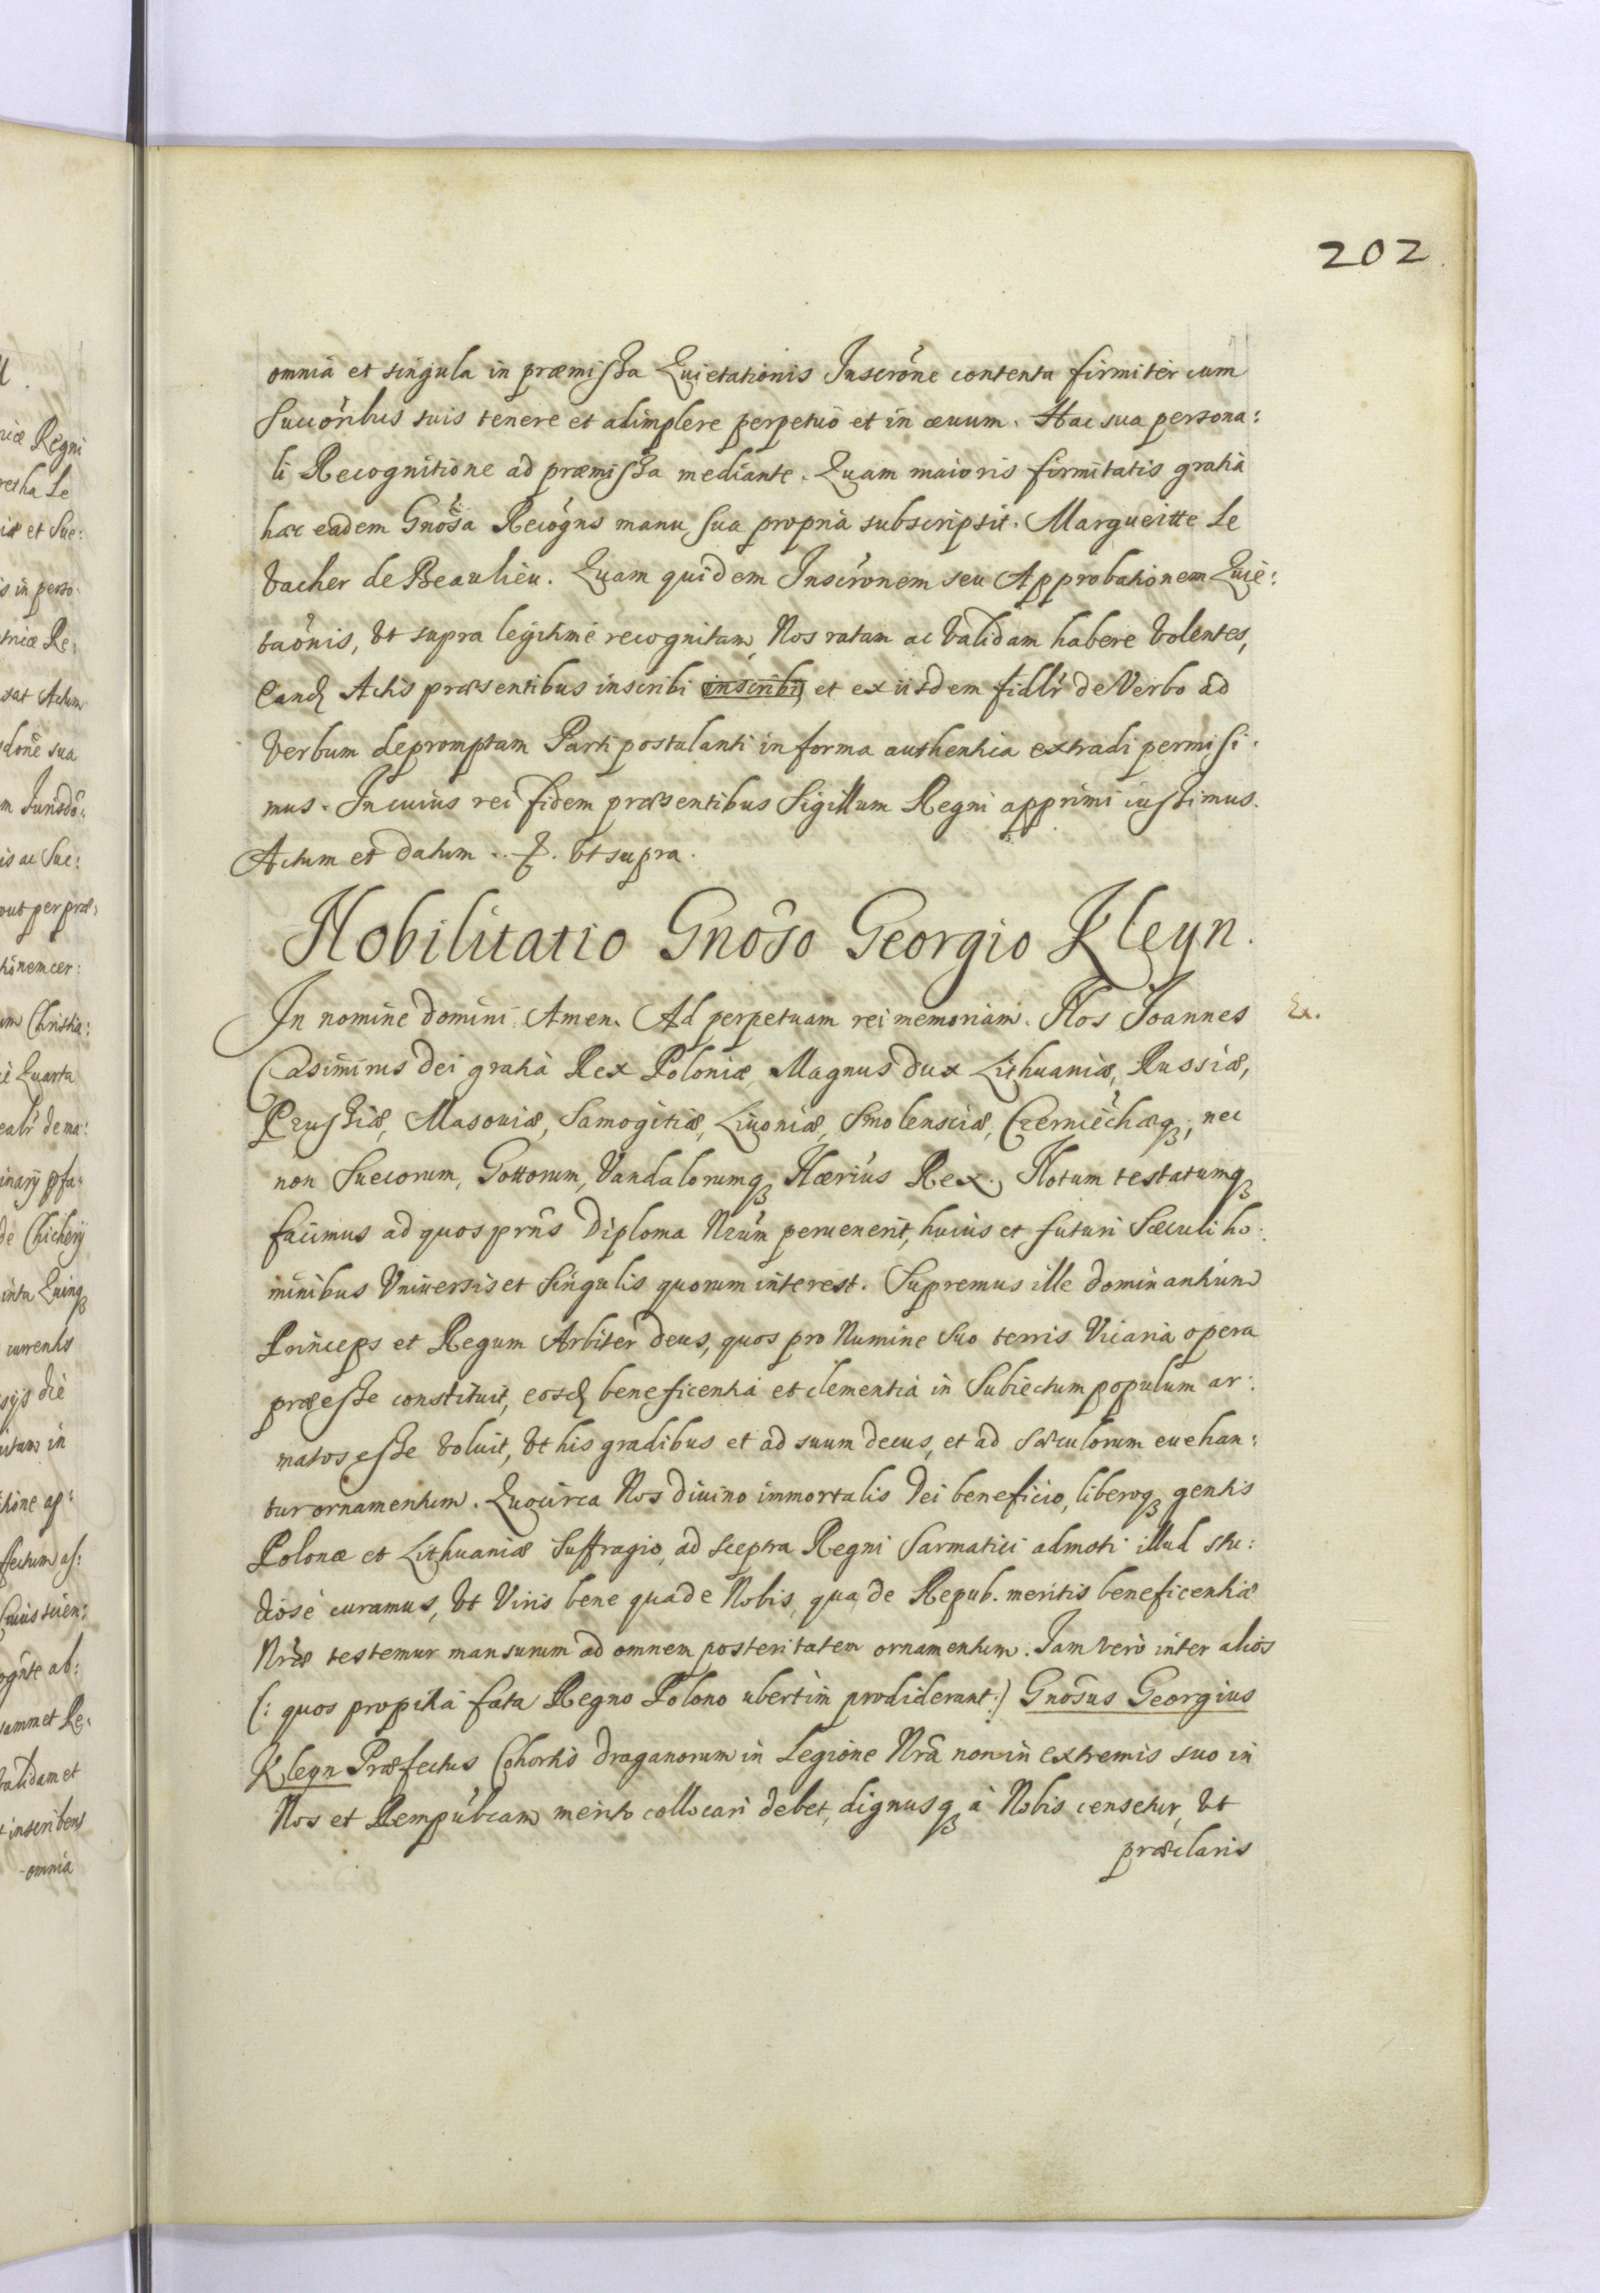 202
omnia et singula in præmissa Quietationis Inscrõne contenta firmiter cum
Succõribus suis tenere et adimplere perpetuo et in æuum. Hac sua persona:
li Recognitione ad præmissa mediante. Quam maioris firmitatis gratia
hæc eadem Gnõsa Recogns manu sua propria subscripsit. Margueitte Le
Vacher de Beaulieu. Quam quidem Inscrõnem seu Approbationem Quie:
taõnis, Vt supra legitime recognitam, Nos ratam ac Validam habere Volentes,
Eandq Actis præsentibus inscribi inscribi, et ex iisdem fidlr de Verbo ad
Verbum depromptam Parti postulanti in forma authentica extradi permisi:
mus. In cuius rei fidem præsentibus Sigillum Regni apprimi iussimus.
Actum et Datum ut supra.
Nobilitatio Gnõso Georgio Kleyn.
In nomine Domini Amen. Ad perpetuam rei memoriam. Nos Joannes
Ex.
Casimirus Dei gratia Rex Poloniæ, Magnus Dux Lithuaniæ, Russiæ,
Prussiæ, Masouiæ, Samogitiæ, Liuoniæ, Smolensciæ, Czerniechæq;, nec
non Suecorum, Gottorum, Vandalorumq; Hærius Rex. Notum testatumq;
facimus ad quos prñs Diploma Nrũm peruenerit, huius et futuri Sæculi ho:
minibus Vniuersis et Singulis quorum interest. Supremus ille Dominantium
Princeps et Regum Arbiter Deus, quos pro Numine Suo terris Vicaria opera
præesse constituit, eosdq beneficentia et clementia in Subiectum populum ar:
matos esse Voluit, Vt his gradibus et ad suum decus, et ad sæculorum euehan:
tur ornamentum. Quocirca Nos Diuino immortalis Dei beneficio, liberoq; gentis
Polonæ et Lithuaniæ Suffragio, ad Sceptra Regni Sarmatici admoti illud stu:
diose curamus, Vt Viris bene qua de Nobis, qua de Repub. meritis beneficentiæ
Nræ testemur mansurum ad omnem posteritatem ornamentum. Iam Vero inter alios
(: quos propitia fata Regno Polono ubertim prodiderant :) Gnõsus Georgius
Kleyn Præfectus Cohortis Draganorum in Legione Nrã non in extremis suo in
Nos et Rempubcam merito collocari debet, dignusq; à Nobis censetur, Vt
præclaris